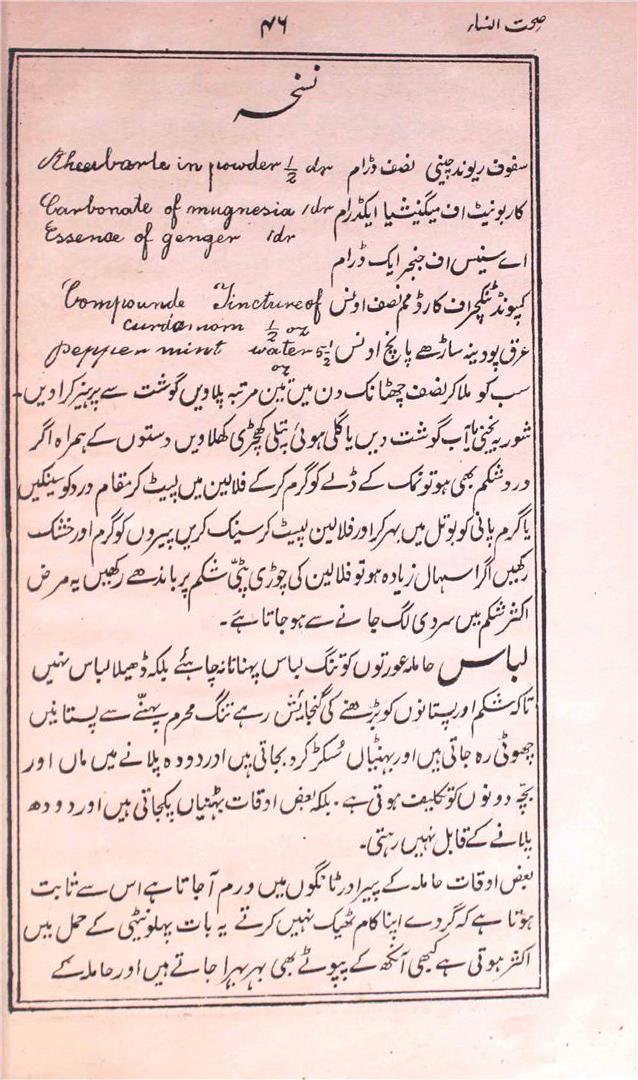 صحت النساء
۴۶
نسخہ
سفوف ریوند چینی نصف ڈرام Rheubarbe in powder ½ dr
کاربونیٹ اف میگنیشیا ایکڈرام Carbonate of mugnesia 1dr
Essence of genger 1dr
اے سنیس اف جنجر ایک ڈرام
کمپونڈ ٹنکچر اف کارڈ مم نصف اونس Compounde Tincture of
curdamom ½ oz
عرق پودینہ ساڑھے پانچ اونس pepper mint water 5½
oz
سب کو ملا کر نصف چھٹانک دن میں تین مرتبہ پلاویں گوشت سے پرہیز کرادیں۔
شوربہ یخنی یا آب گوشت دیں یا گلی ہوئی پتلی کھچڑی کھلاویں دستوں کے ہمراہ اگر
درد شکم بھی ہو تو نمک کے ڈلے کو گرم کر کے فلالین میں لپیٹ کر مقام درد کو سینکیں
یا گرم پانی کو بوتل میں بہر کر اور فلالین لپیٹ کر سینک کریں پیروں کو گرم اور خشک
رکھیں اگر اسہال زیادہ ہو تو فلالین کی چوڑی پٹی شکم پر باندھے رکھیں یہ مرض
اکثر شکم میں سردی لگ جانے سے ہو جاتا ہے۔
لباس حاملہ عورتوں کو تنگ لباس پہنانا نہ چاہئے بلکہ ڈھیلا لباس نہیں
تاکہ شکم اور پستانوں کو بڑھنے کی گنجایش رہے تنگ محرم پہنے سے پستانیں
چھوٹی رہ جاتی ہیں اور بہٹنیاں سُکڑ کر دبجاتی ہیں اور دودہ پلانے میں ماں اور
بچہ دونوں کو تکلیف ہوتی ہے۔ بلکہ بعض اوقات بہٹنیاں پکجاتی ہیں اور دودھ
پلانے کے قابل نہیں رہتی۔
بعض اوقات حاملہ کے پیر اور ٹانگوں میں ورم آجاتا ہے اس سے ثابت
ہوتا ہے کہ گردے اپنا کام ٹھیک نہیں کرتے یہ بات پہلونیٹی کے حمل میں
اکثر ہوتی ہے کبھی آنکھ کے پپوٹے بھی بہر بہرا جاتے ہیں اور حاملہ کے